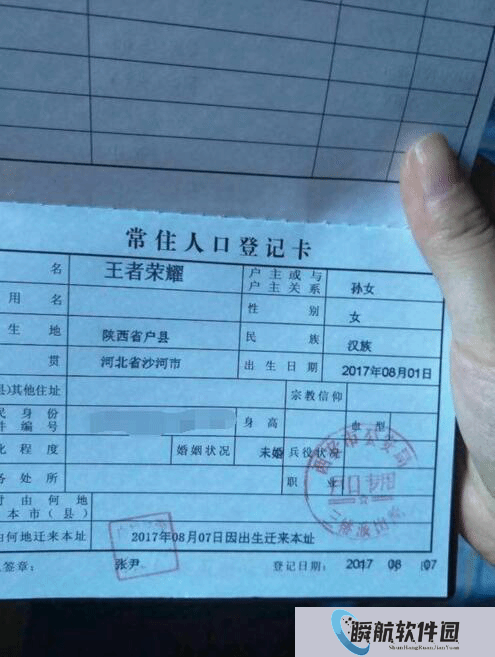 常住人口登记卡
名 王者荣耀 户主或与户主关系 孙女
用名 性别 女
生地 陕西省户县 民族 汉族
贯 河北省沙河市 出生日期 2017年08月01日
县)其他住址 宗教信仰
民身份
件编号 身高 血型
化程度 婚姻状况 未婚 兵役状况
务处所 职业
时由何地
本市(县)
何地迁来本址 2017年08月07日因出生迁来本址
签章: 张尹 登记日期: 2017 08 07
户口专用
瞬航软件园
ShunHangRuanJianYuan.Com